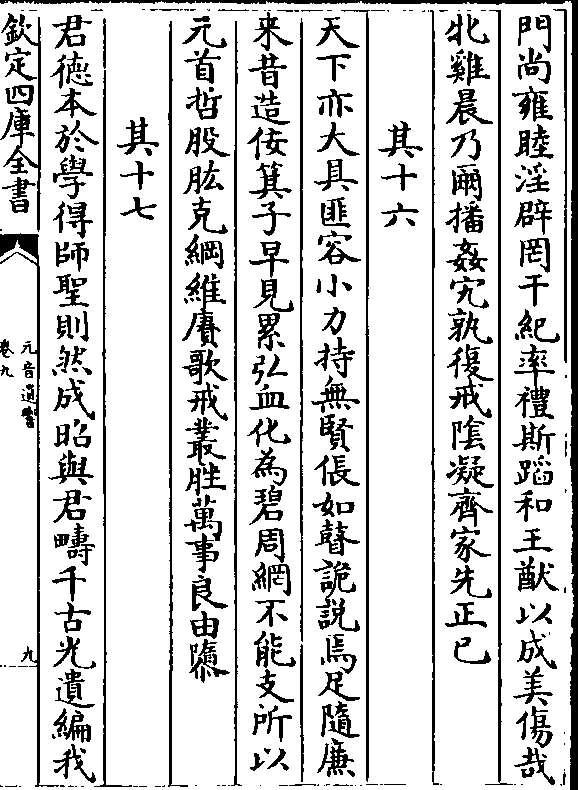 門尚雍睦淫辟罔干紀率禮斯蹈和王猷以成美傷哉
牝雞晨乃爾播姦宄孰復戒陰凝齊家先正已
其十六
天下亦大具匪容小力持無賢倀如瞽詭説焉足隨廉
来昔造佞箕子早見累弘血化為碧周網不能支所以
元首哲股肱克綱維賡歌戒叢脞萬事良由隳
其十七
君徳本於學得師聖則然成昭與君疇千古光遺編我
欽定四庫全書
元音遺響
卷九
九